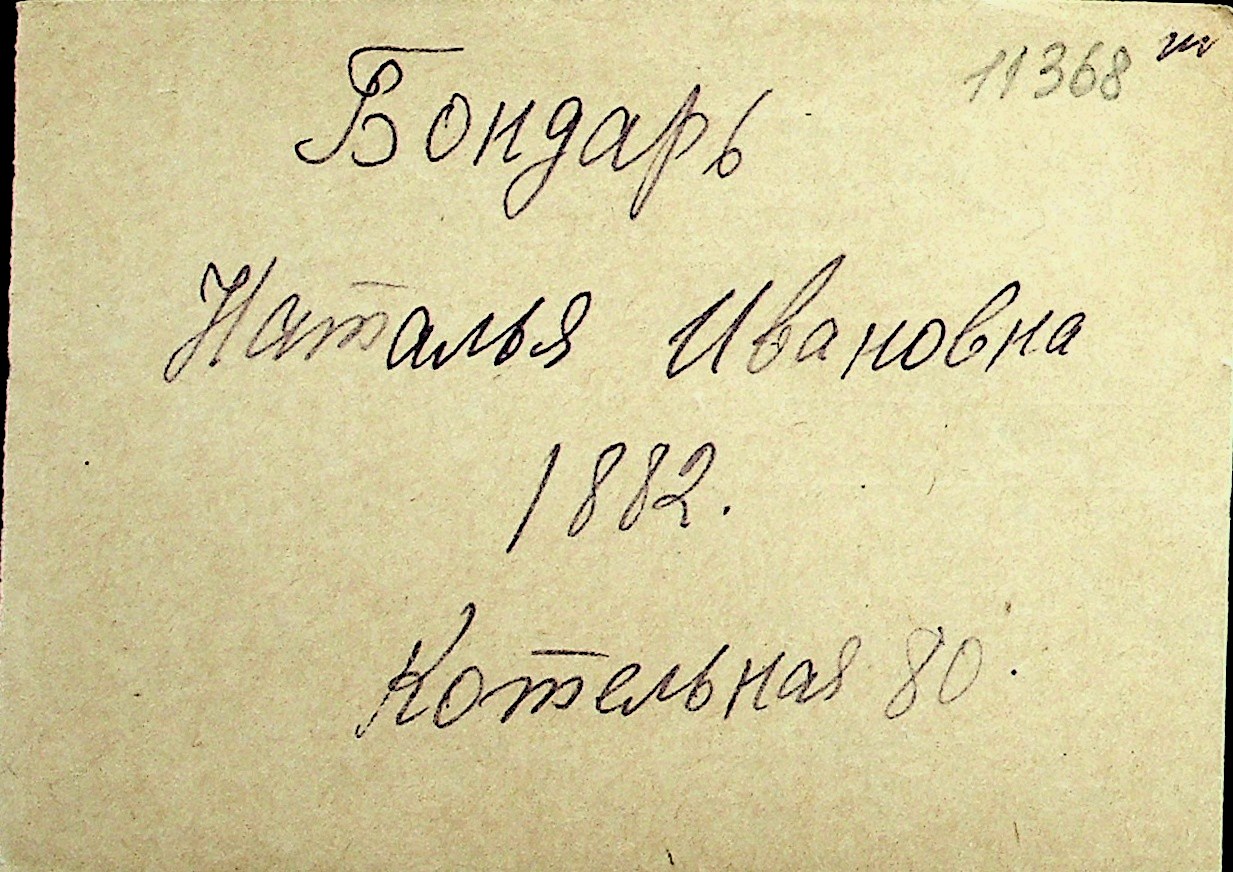 11368
Бондарь
Наталья Ивановна
1882.
Котельная 80.